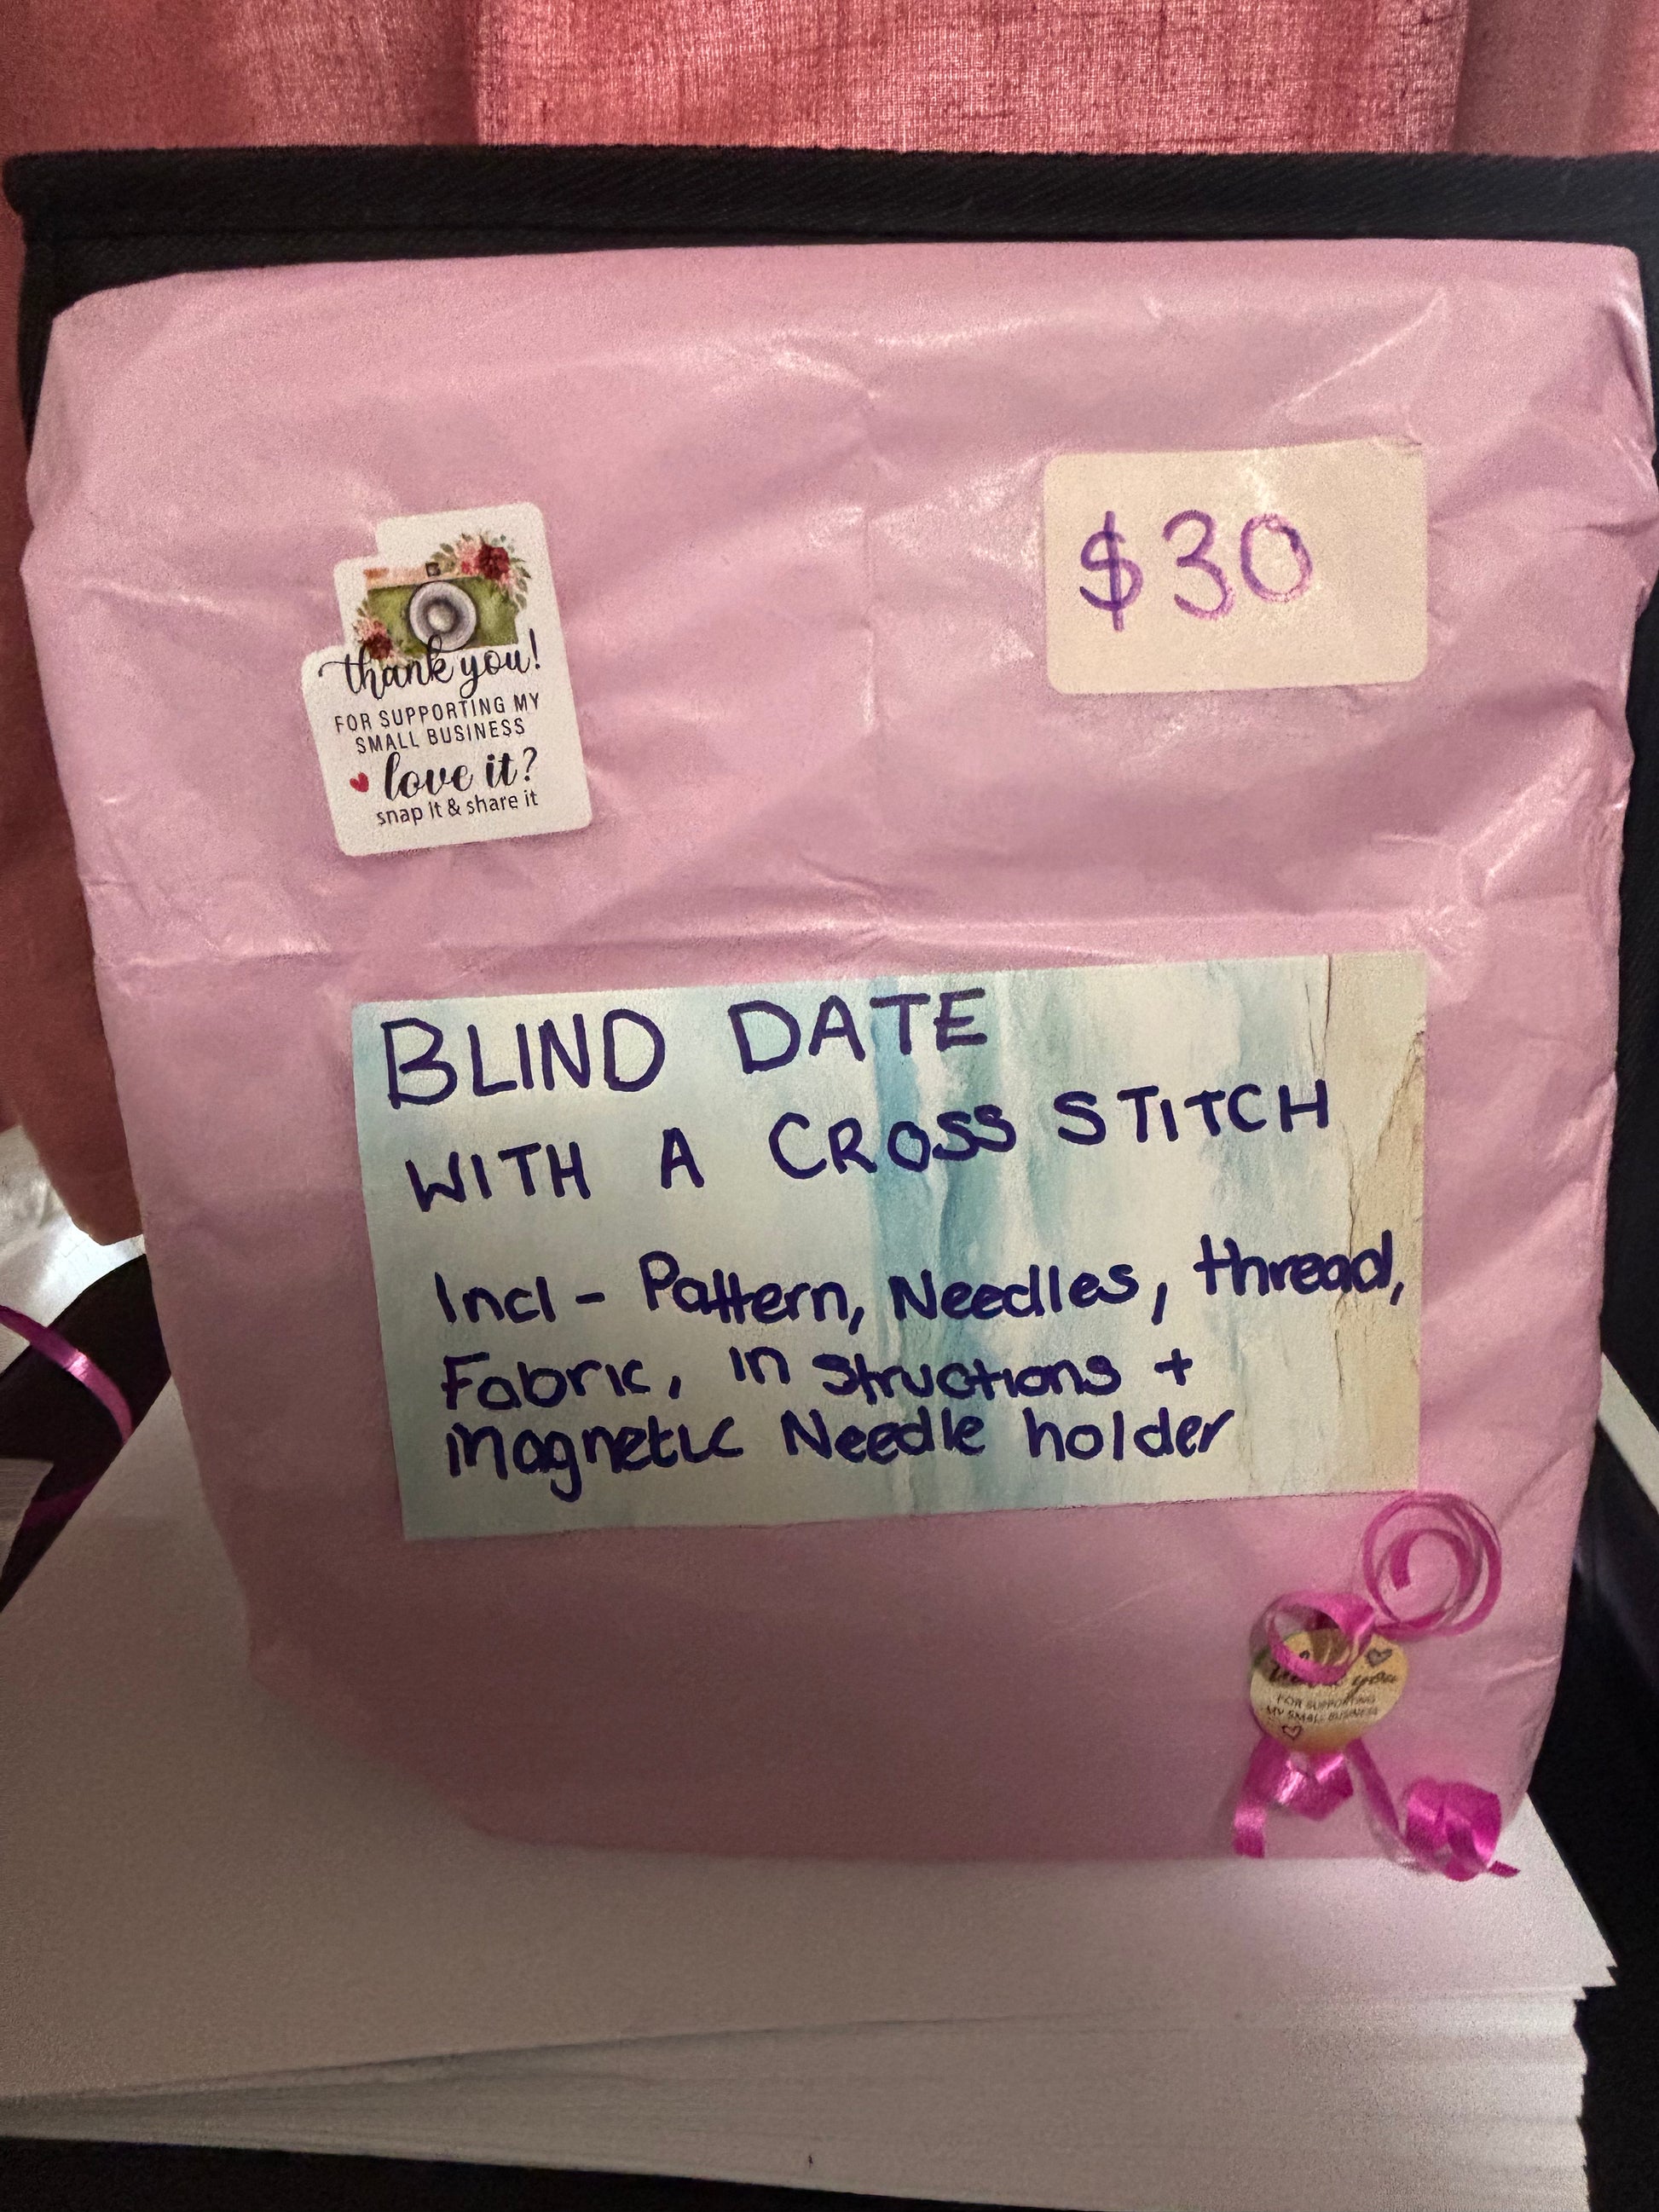 $30
thank you!
FOR SUPPORTING MY
SMALL BUSINESS
love it?
snap it & share it
BLIND DATE
WITH A CROSS STITCH
Incl - Pattern, Needles, thread,
Fabric, instructions +
Magnetic Needle holder
you
FOR SUPPORTING
MY SMALL BUSINESS